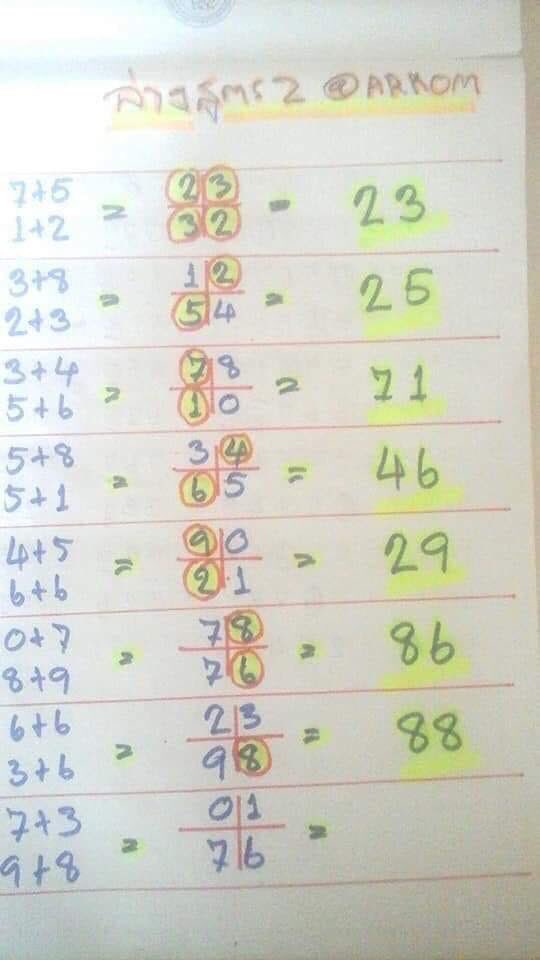 ล่างสูตร 2 @ARKOM
7+5 = 2 3 = 23
1+2 3 2
3+8 = 1 2 = 25
2+3 5 4
3+4 = 7 8 = 71
5+6 1 0
5+8 = 3 4 = 46
5+1 6 5
4+5 = 9 0 = 29
6+6 2 1
0+7 = 7 8 = 86
8+9 7 6
6+6 = 2 3 = 88
3+6 9 8
7+3 = 0 1 =
9+8 7 6